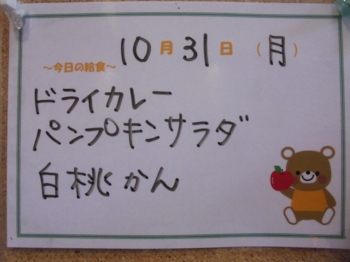 10月31日(月)
～今日の給食～
ドライカレー
パンプキンサラダ
白桃かん